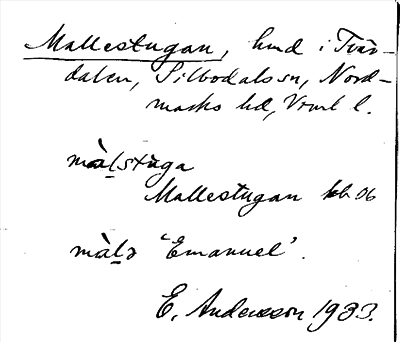 Mallestugan, hmd i Tvär-
dalen, Silbodals sn, Nord-
marks hd, Vrml l.
màl̠stuga
Mallestugan kb 06
màl̠ə ‘Emanuel’.
E. Andersson 1933.